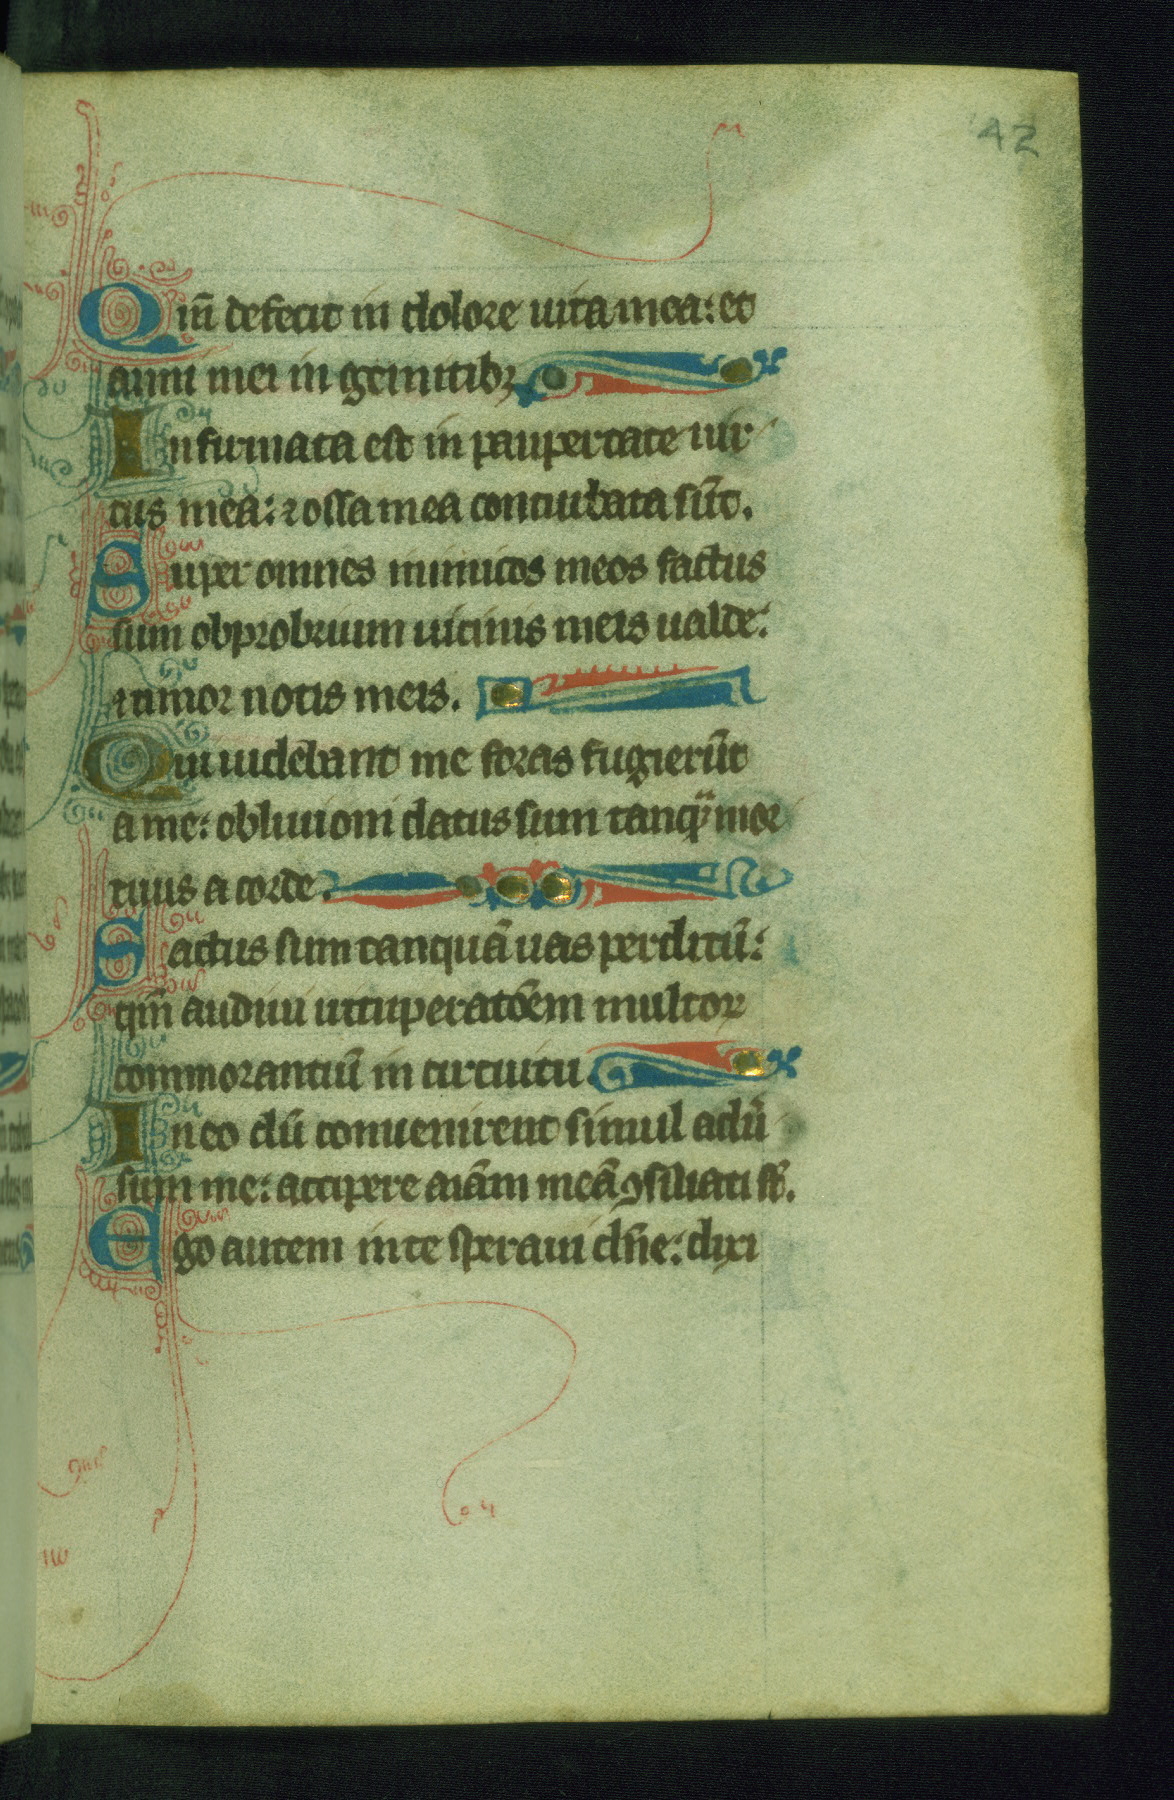 42
Qm̄ defecit in dolore uita mea: et
anni mei in gemitibꝫ
Infirmata est in paupertate uir
tus mea: ⁊ ossa mea conturbata sūt.
Super omnes inimicos meos factus
sum obprobrium uicinis meis ualde:
⁊ timor notis meis.
Qui uidebant me foras fugierūt
a me: obliuioni datus sum tanqͣ mor
tuus a corde.
Factus sum tanquā uas perditū:
qm̄ audiui uituperatōem multor
commorantiū in circuitu
In eo dū conuenirent simul aduͥ
sum me: accipere aīam meā ꝯsiliati sr̄.
Ego autem in te speraui dn̄e: dixi